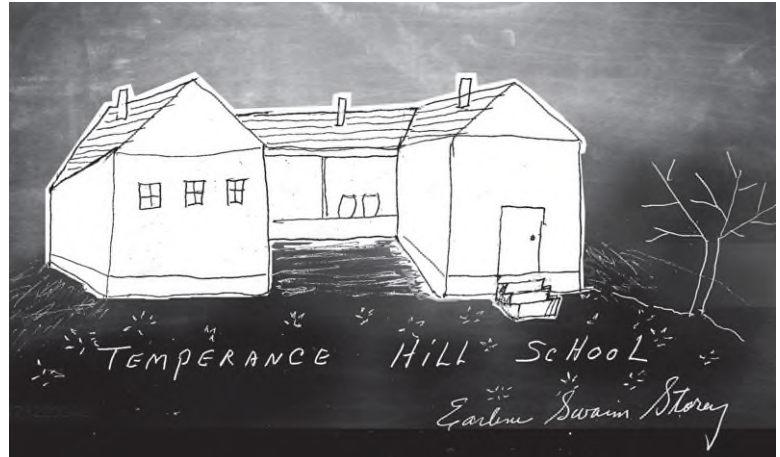 TEMPERANCE HILL SCHOOL
Earline Swaim Storey